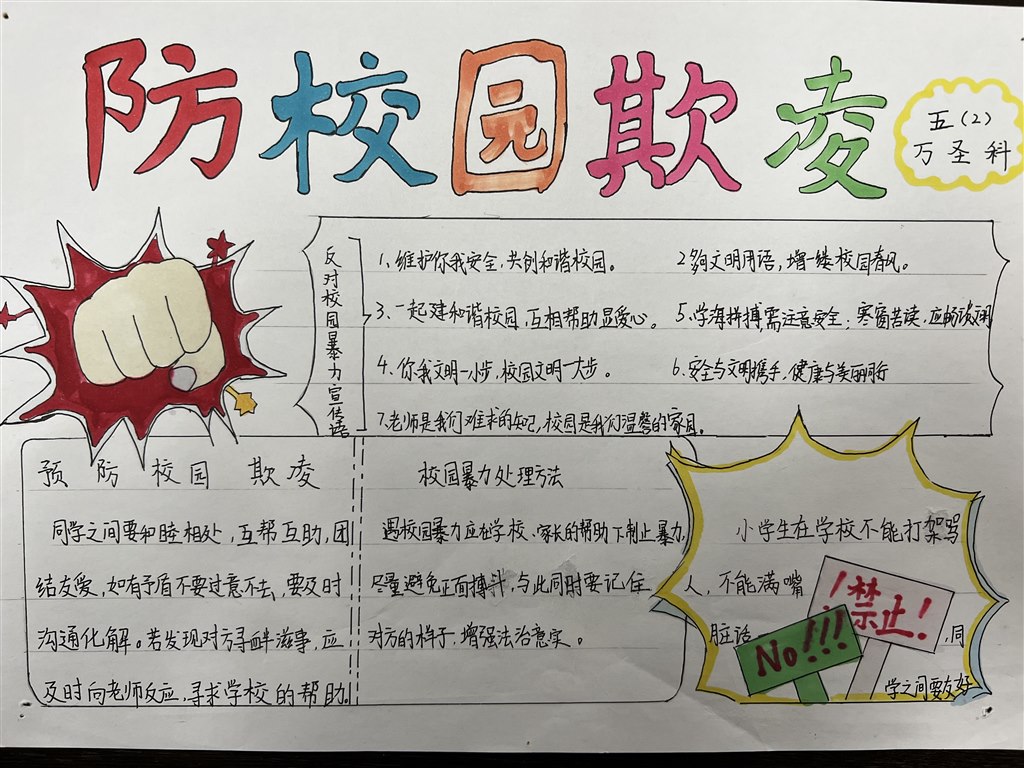 防校园欺凌
五(2)
万圣科
反对校园暴力宣传语
1、维护你我安全,共创和谐校园。
2多句文明用语,增一缕校园春风。
3、一起建和谐校园,互相帮助显爱心。
5、学海拼搏需注意安全;寒窗苦读,应畅谈文明
4、你我文明一小步,校园文明一大步。
6、安全与文明携手,健康与美丽同行
7、老师是我们难求的知己,校园是我们温馨的家园。
预防校园欺凌
同学之间要和睦相处,互帮互助,团
结友爱,如有矛盾不要过意不去,要及时
沟通化解。若发现对方寻衅滋事,应
及时向老师反应,寻求学校的帮助。
校园暴力处理方法
遇校园暴力应在学校、家长的帮助下制止暴力,
尽量避免正面搏斗,与此同时要记住
对方的样子,增强法治意实。
小学生在学校不能打架骂
人,不能满嘴
脏话
,同
学之间要友好
!禁止!
No!!!